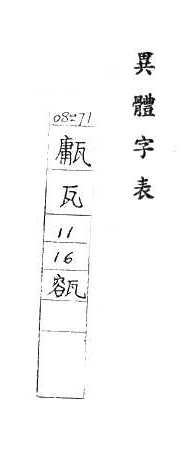 異體字表
08271
㼸
瓦
11
16
㼸